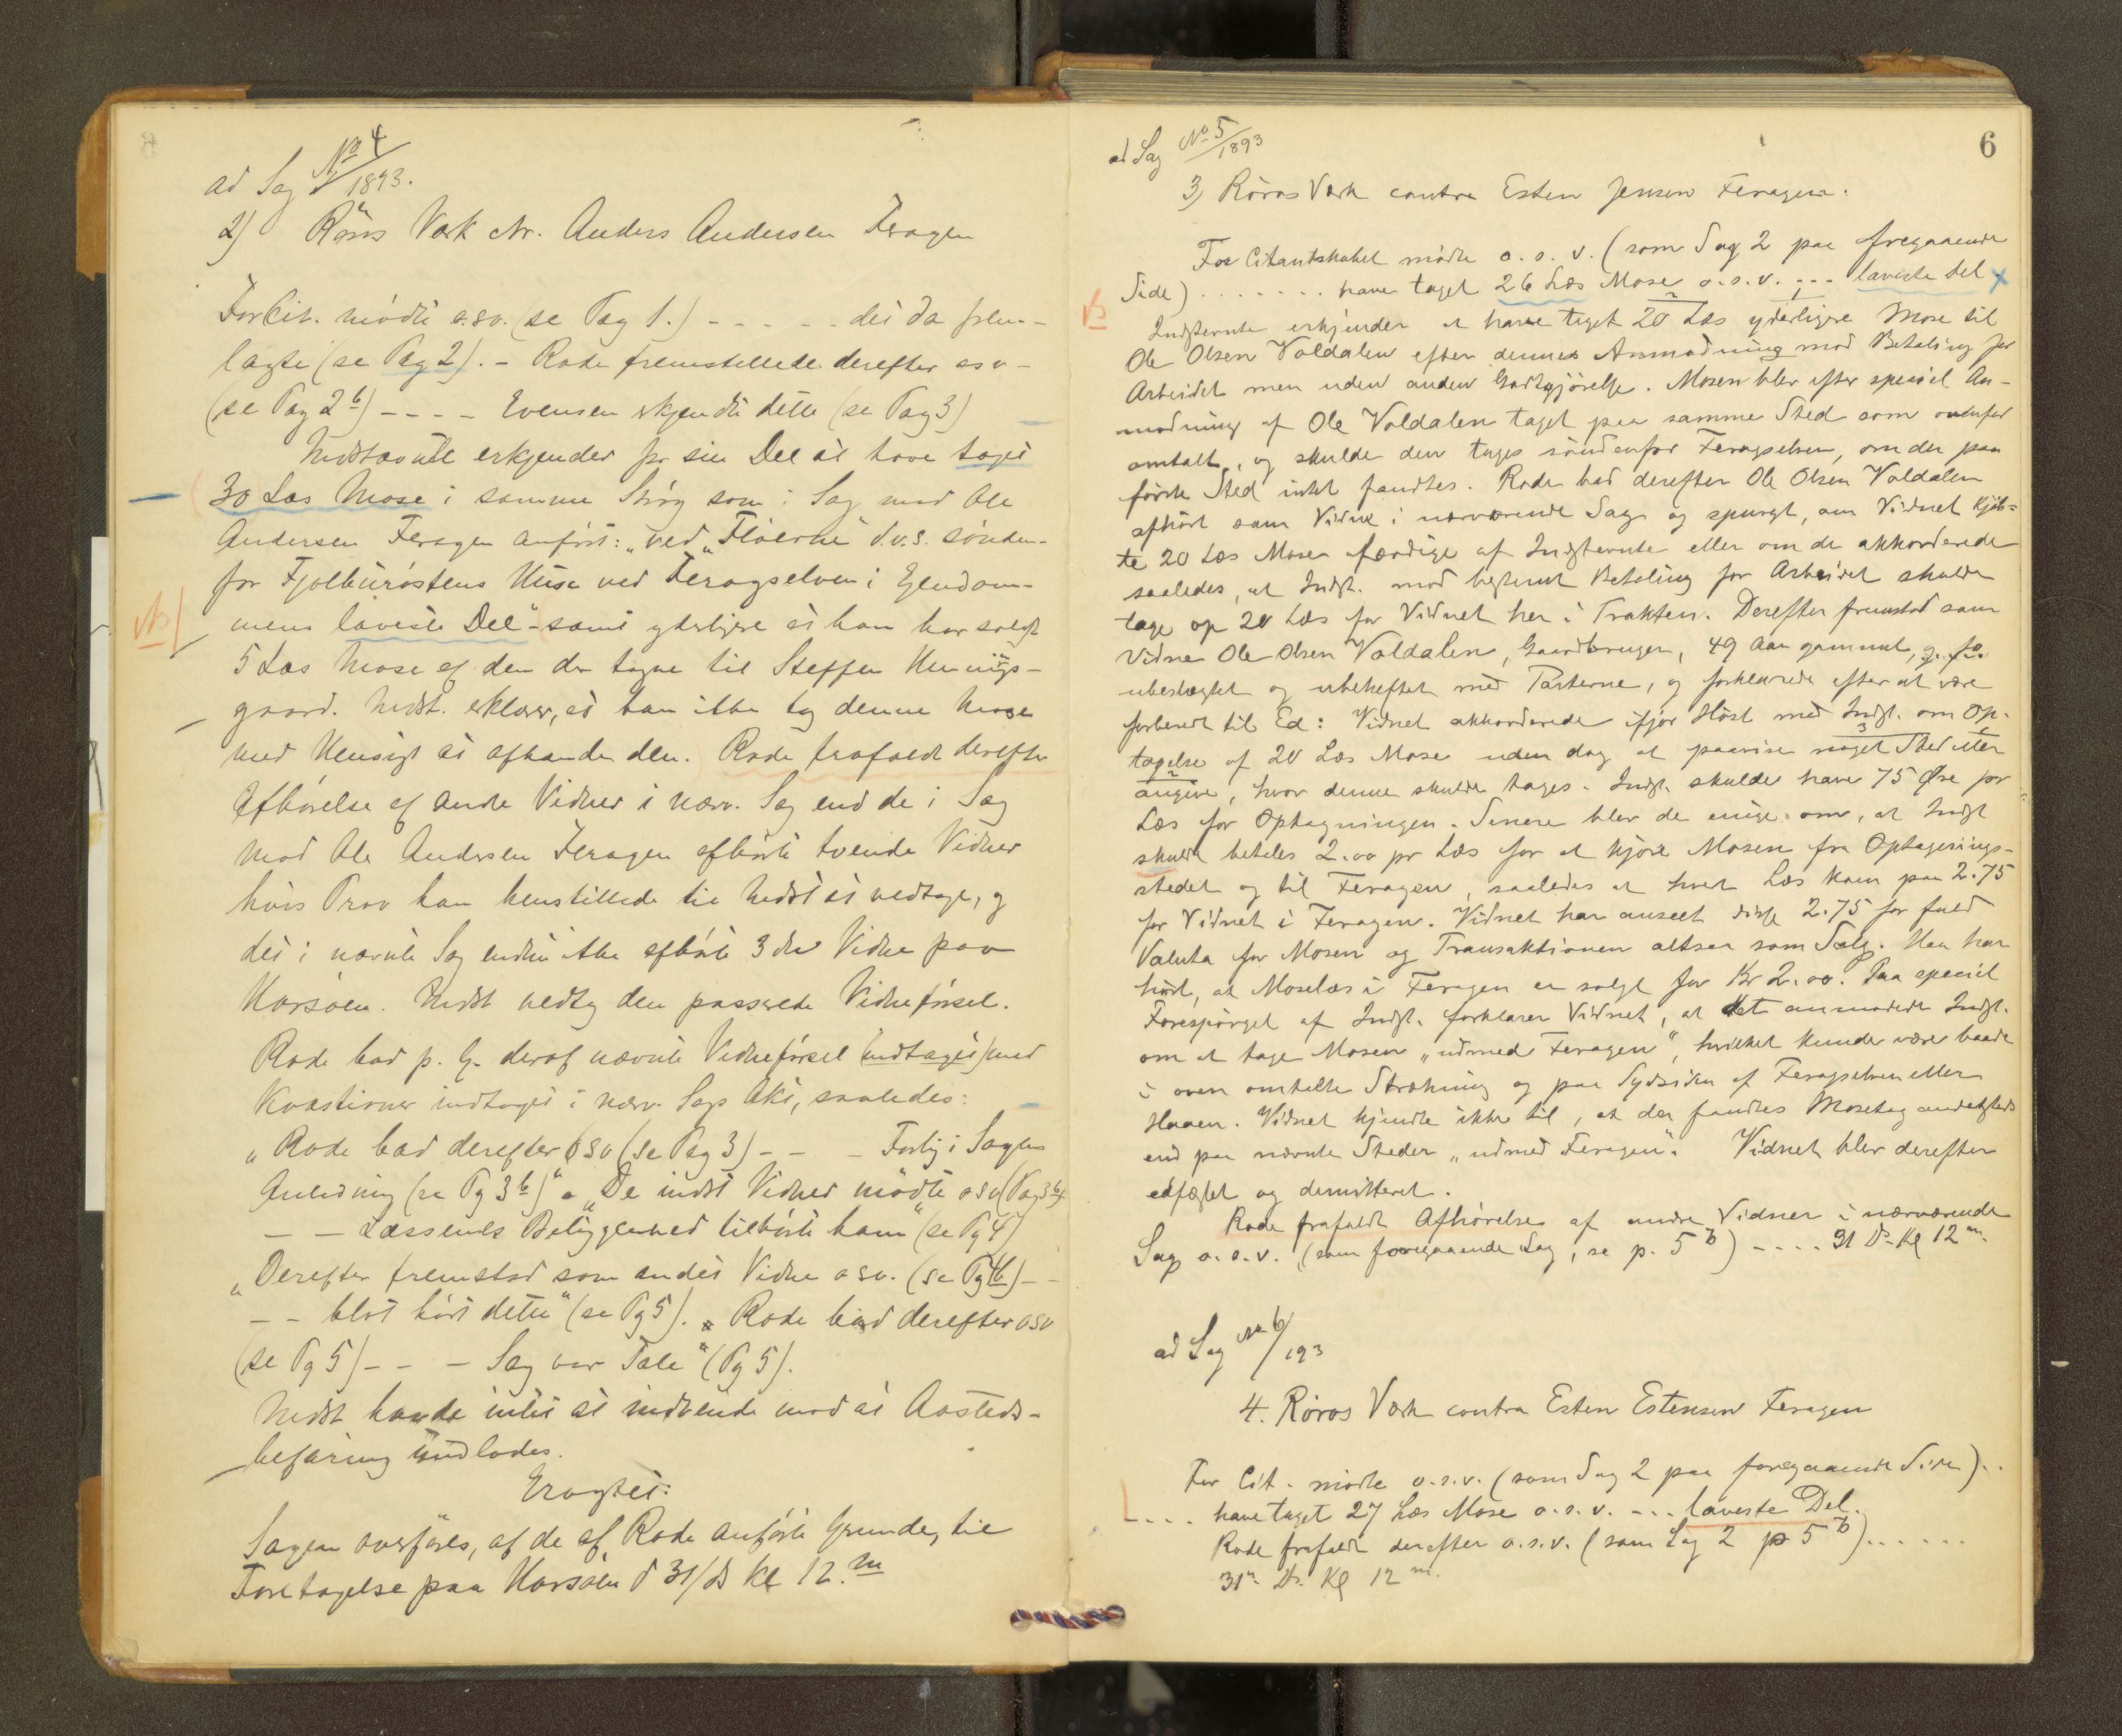 ad Sag No 4/1893.
2) Röros Værk ctr. Anders Andersen Feragen
For Cit. mödte o.sv. (se Pag 1.) - - - - - det da frem-
lagte (se Pag 2). - Rode fremstillede derefter osv -
(se Pag 2b) - - - - Evensen erkjendte dette (se Pag 3)
Indstævnte erkjender for sin Del at have taget
30 Læs Mose i samme Strög som i Sag mod Ole
Andersen Feragen anfört: "ved "Floerne" d.v.s. sönden-
for Fjolburöstens Huse ved Feragselven i Ejendom-
mens laveste Del" - samt yderligere at han har solgt
5 Læs Mose af den der tagne til Steffen Hennings-
gaard. Indst. erklærer, at han ikke tog denne Mose
med Hensigt at afhænde den. Rode frafaldt derefter
Afhörelse af andre Vidner i nærv. Sag end de i Sag
mod Ole Andersen Feragen afhörte tvende Vidner
hvis Prov han henstillede til Indst at vedtage, og
det i nævnte Sag endnu ikke afhörte 3die Vidne paa
Narsöen. Indst vedtog den passerede Vidneförsel.
Rode bad p. G. deraf nævnte Vidneförsel (indtaget) med
Kvæstioner indtaget i nærv. Sags Akt, saaledes:
"Rode bad derefter osv (se Pag 3) - - - Forlig i Sagens
Anledning (se Pg 3b)" "De indst Vidner mödte osv (Pag 3b)
- - Læssenes Beliggenhed tilhörte ham" (se Pg 4)
"Derefter fremstod som andet Vidne osv. (se Pg 4b) - -
- - blot hört dette" (se Pg 5). "Rode bad derefter osv
(se Pg 5) - - - Sag var Tale" (Pg 5).
Indst havde intet at indvende mod at Aasteds-
befaring undlodes.
Eragtet:
Sagen overföres, af de af Rode anförte Grunde, til
Foretagelse paa Narsöen d 31/ds kl 12. m
6
ad Sag No 5/1893
3) Röros Værk contra Esten Jensen Feragen.
For Citantskabet mödte o. s. v. (som Sag 2 paa foregaaende
Side) . . . . . . . have taget 26 Læs Mose o.s.v. ; - - laveste Del x
Indstevnte erkjender at have taget 20 Læs yderligere Mose til
Ole Olsen Voldalen efter dennes Anmodning mod Betaling for
Arbeidet men uden anden Godtgjörelse. Mosen blev efter speciel An-
modning af Ole Voldalen taget paa samme Sted som ovenfor
omtalt, og skulde den tages söndenfor Feragselven, om der paa
förste Sted intet fandtes. Rode bad derefter Ole Olsen Voldalen
afhört som Vidne i nærværende Sag og spurgt, om Vidnet kjöb-
te 20 Læs Mose færdige af Indstevnte eller om de akkorderede
saaledes, at Indst. mod bestemt Betaling for Arbeidet skulde
tage op 20 Læs for Vidnet her i Trakten. Derefter fremstod som
Vidne Ole Olsen Voldalen, Gaardbruger, 49 Aar gammel,
ubeslægtet og ubeheftet med Parterne, og forklarede efter at være
forberedt til Ed: Vidnet akkorderede ifjor Höst med Indst. om Op-
tagelse af 20 Læs Mose uden dog at paavise noget Sted eller
angive, hvor denne skulde tages. Indst. skulde have 75 Öre pr
Læs for Optagningen. Senere blev de enige om, at Indst
skulde betales 2.00 pr Læs for at kjöre Mosen fra Optagnings-
stedet og til Feragen, saaledes at hvert Læs kom paa 2.75
for Vidnet i Feragen. Vidnet har anseet disse 2.75 for fuld
Valuta for Mosen og Transaktionen altsaa som Salg. Han har
hört, at Moselæs i Feragen er solgt for Kr 2.00. Paa speciel
Forespörgsel af Indst. forklarer Vidnet, at det anmodede Indst.
om at tage Mosen "udmed Feragen", hvilket kunde være baade
i oven omtalte Strækning og paa Sydsiden af Feragselven eller
Haaen. Vidnet kjendte ikke til, at der fandtes Mosetag andetsteds
end paa nævnte Steder "udmed Feragen". Vidnet blev derefter
edfæstet og demitteret.
Rode frafaldt Afhörelse af andre Vidner i nærværende
Sag o. s. v. (som foregaaende Sag, se p. 5b) - - - - 31 Ds Kl 12 m.
ad Sag No 6/193
4. Röros Værk contra Esten Estensen Feragen
For Cit. mödte o.s.v. (som Sag 2 paa foregaaende Side) . .
- - - - have taget 27 Læs Mose o.s.v. - - - laveste Del.
Rode frafaldt derefter o.s.v. (som Sag 2 p 5b) . . . . . .
31te Ds. Kl 12 m.